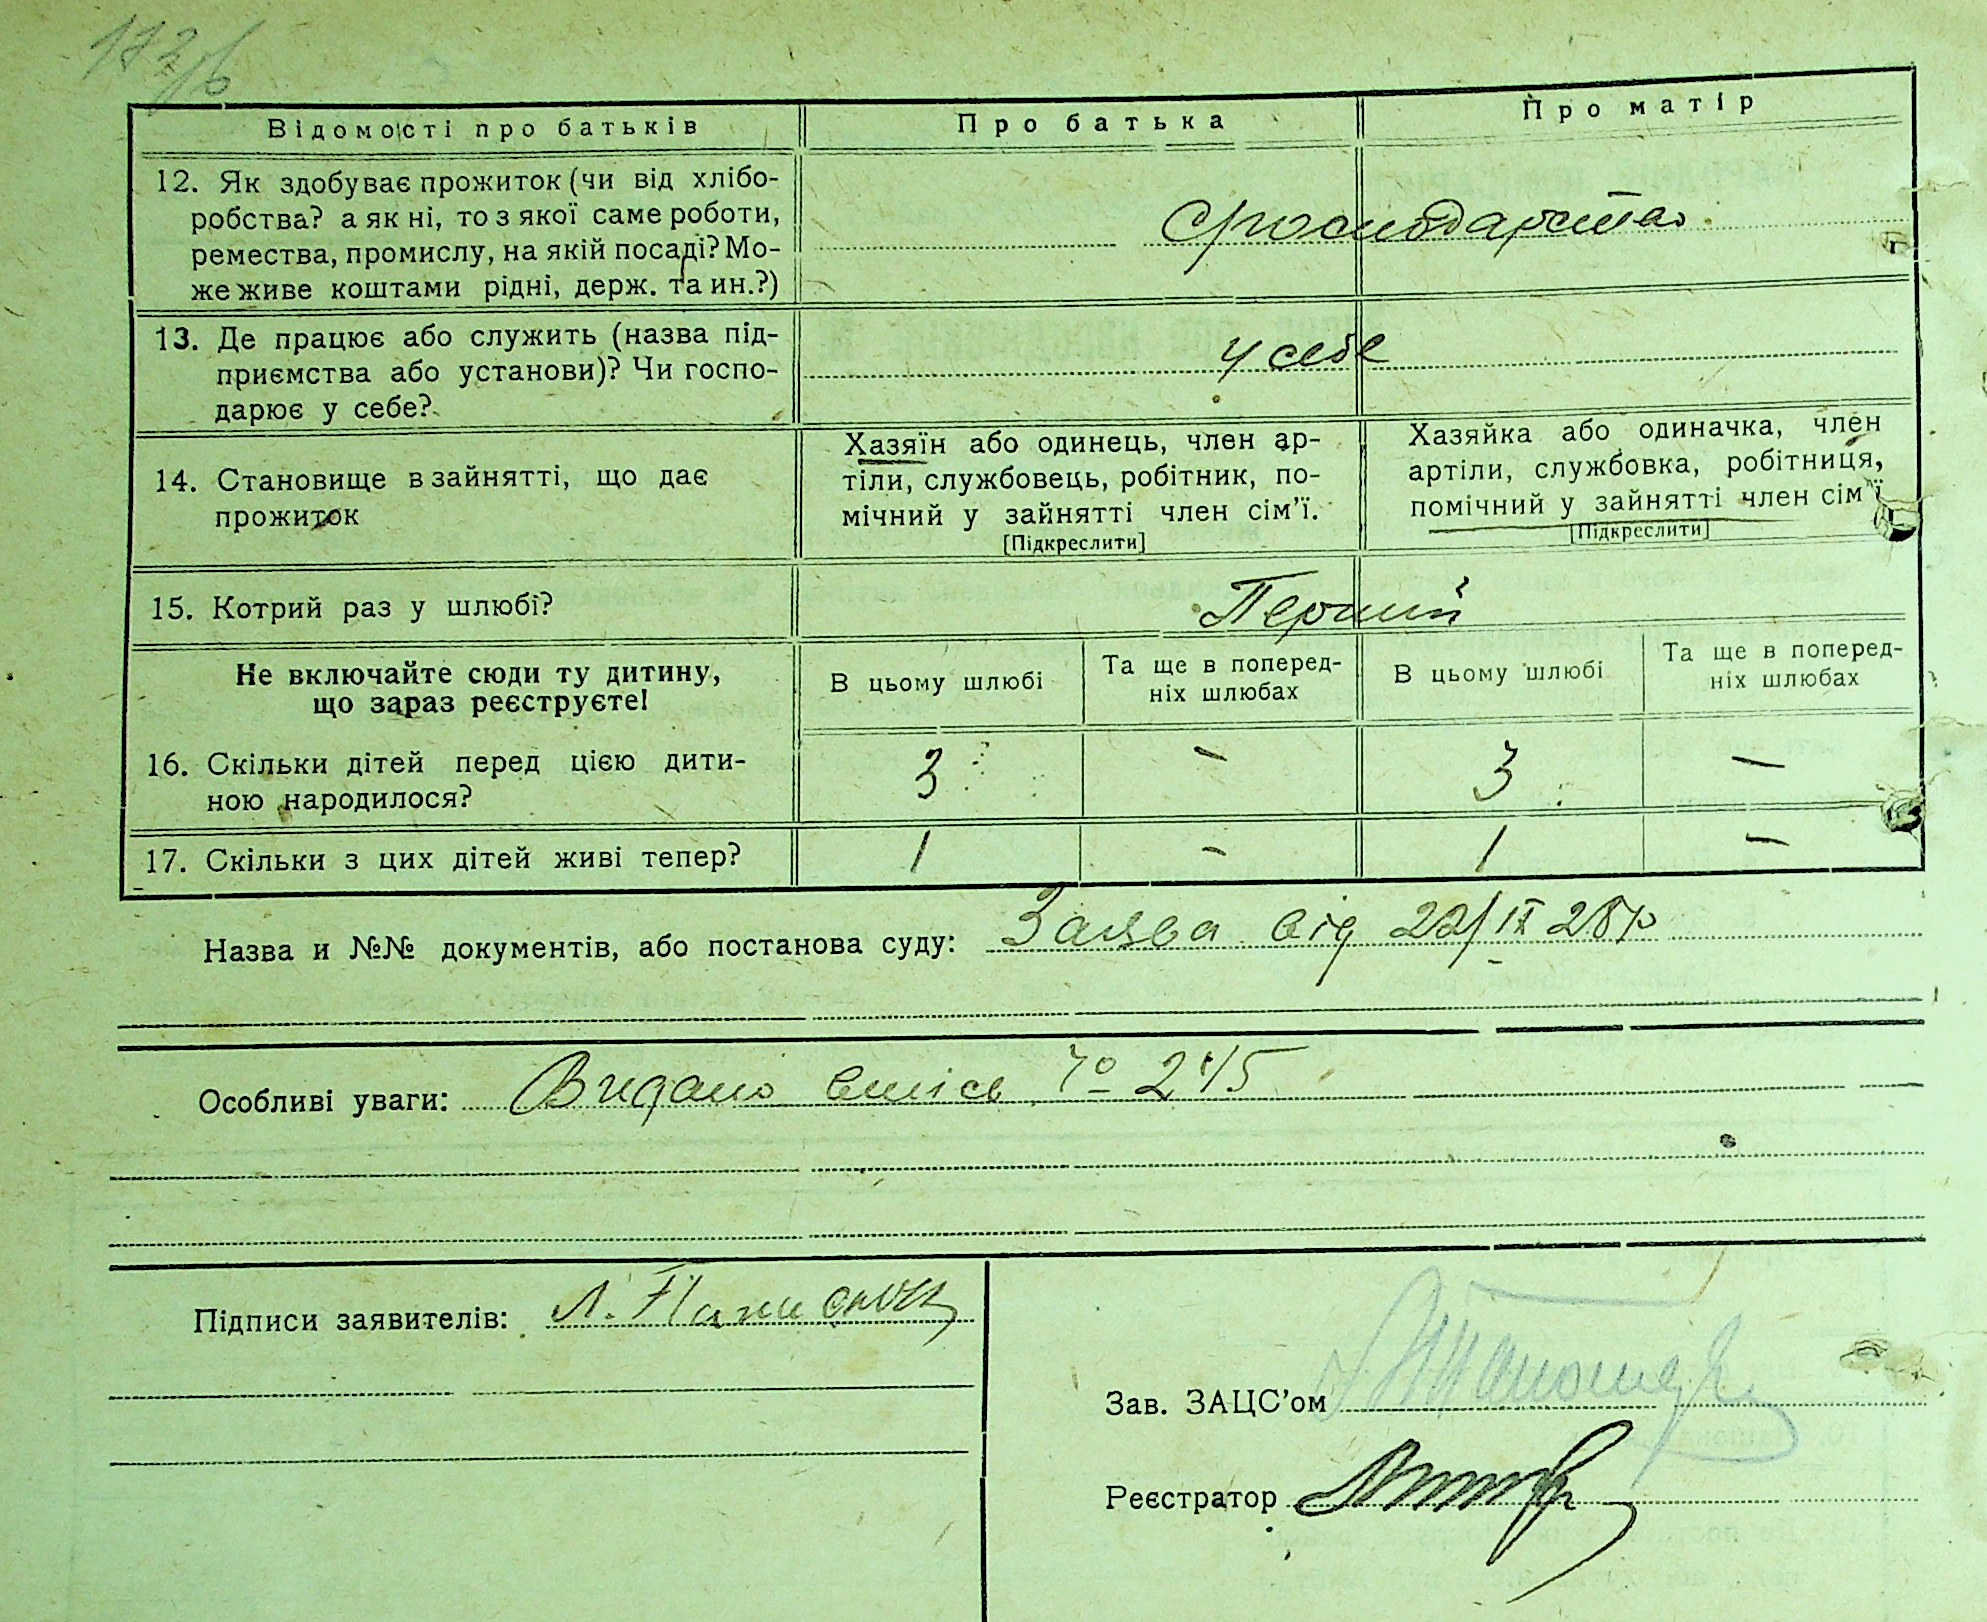 Відомості про батьків Про батька Про матір
12. Як здобуває прожиток (чи від хлібо-
робства? а як ні, то з якої саме роботи,
ремества, промислу, на якій посаді? Мо-
же живе коштами рідні, держ. та ин.?)
господарства
13. Де працює або служить (назва під-
приємства або установи)? Чи госпо-
дарює у себе?
у себе
14. Становище в зайнятті, що дає
прожиток
Хазяїн або одинець, член ар-
тіли, службовець, робітник, по-
мічний у зайнятті член сім’ї.
[Підкреслити]
Хазяйка або одиначка, член
артіли, службовка, робітниця,
помічний у зайнятті член сім’ї
[Підкреслити]
15. Котрий раз у шлюбі? Перший
Не включайте сюди ту дитину,
що зараз реєструєте!
В цьому шлюбі
Та ще в поперед-
ніх шлюбах
В цьому шлюбі
Та ще в поперед-
ніх шлюбах
16. Скільки дітей перед цією дити-
ною народилося?
3 – 3 –
17. Скільки з цих дітей живі тепер? 1 – 1 –
Назва и №№ документів, або постанова суду: Заява від 22/IX 28 р
Особливі уваги: Видано випись № 245
Підписи заявителів: Л.
Зав. ЗАЦС’ом
Реєстратор